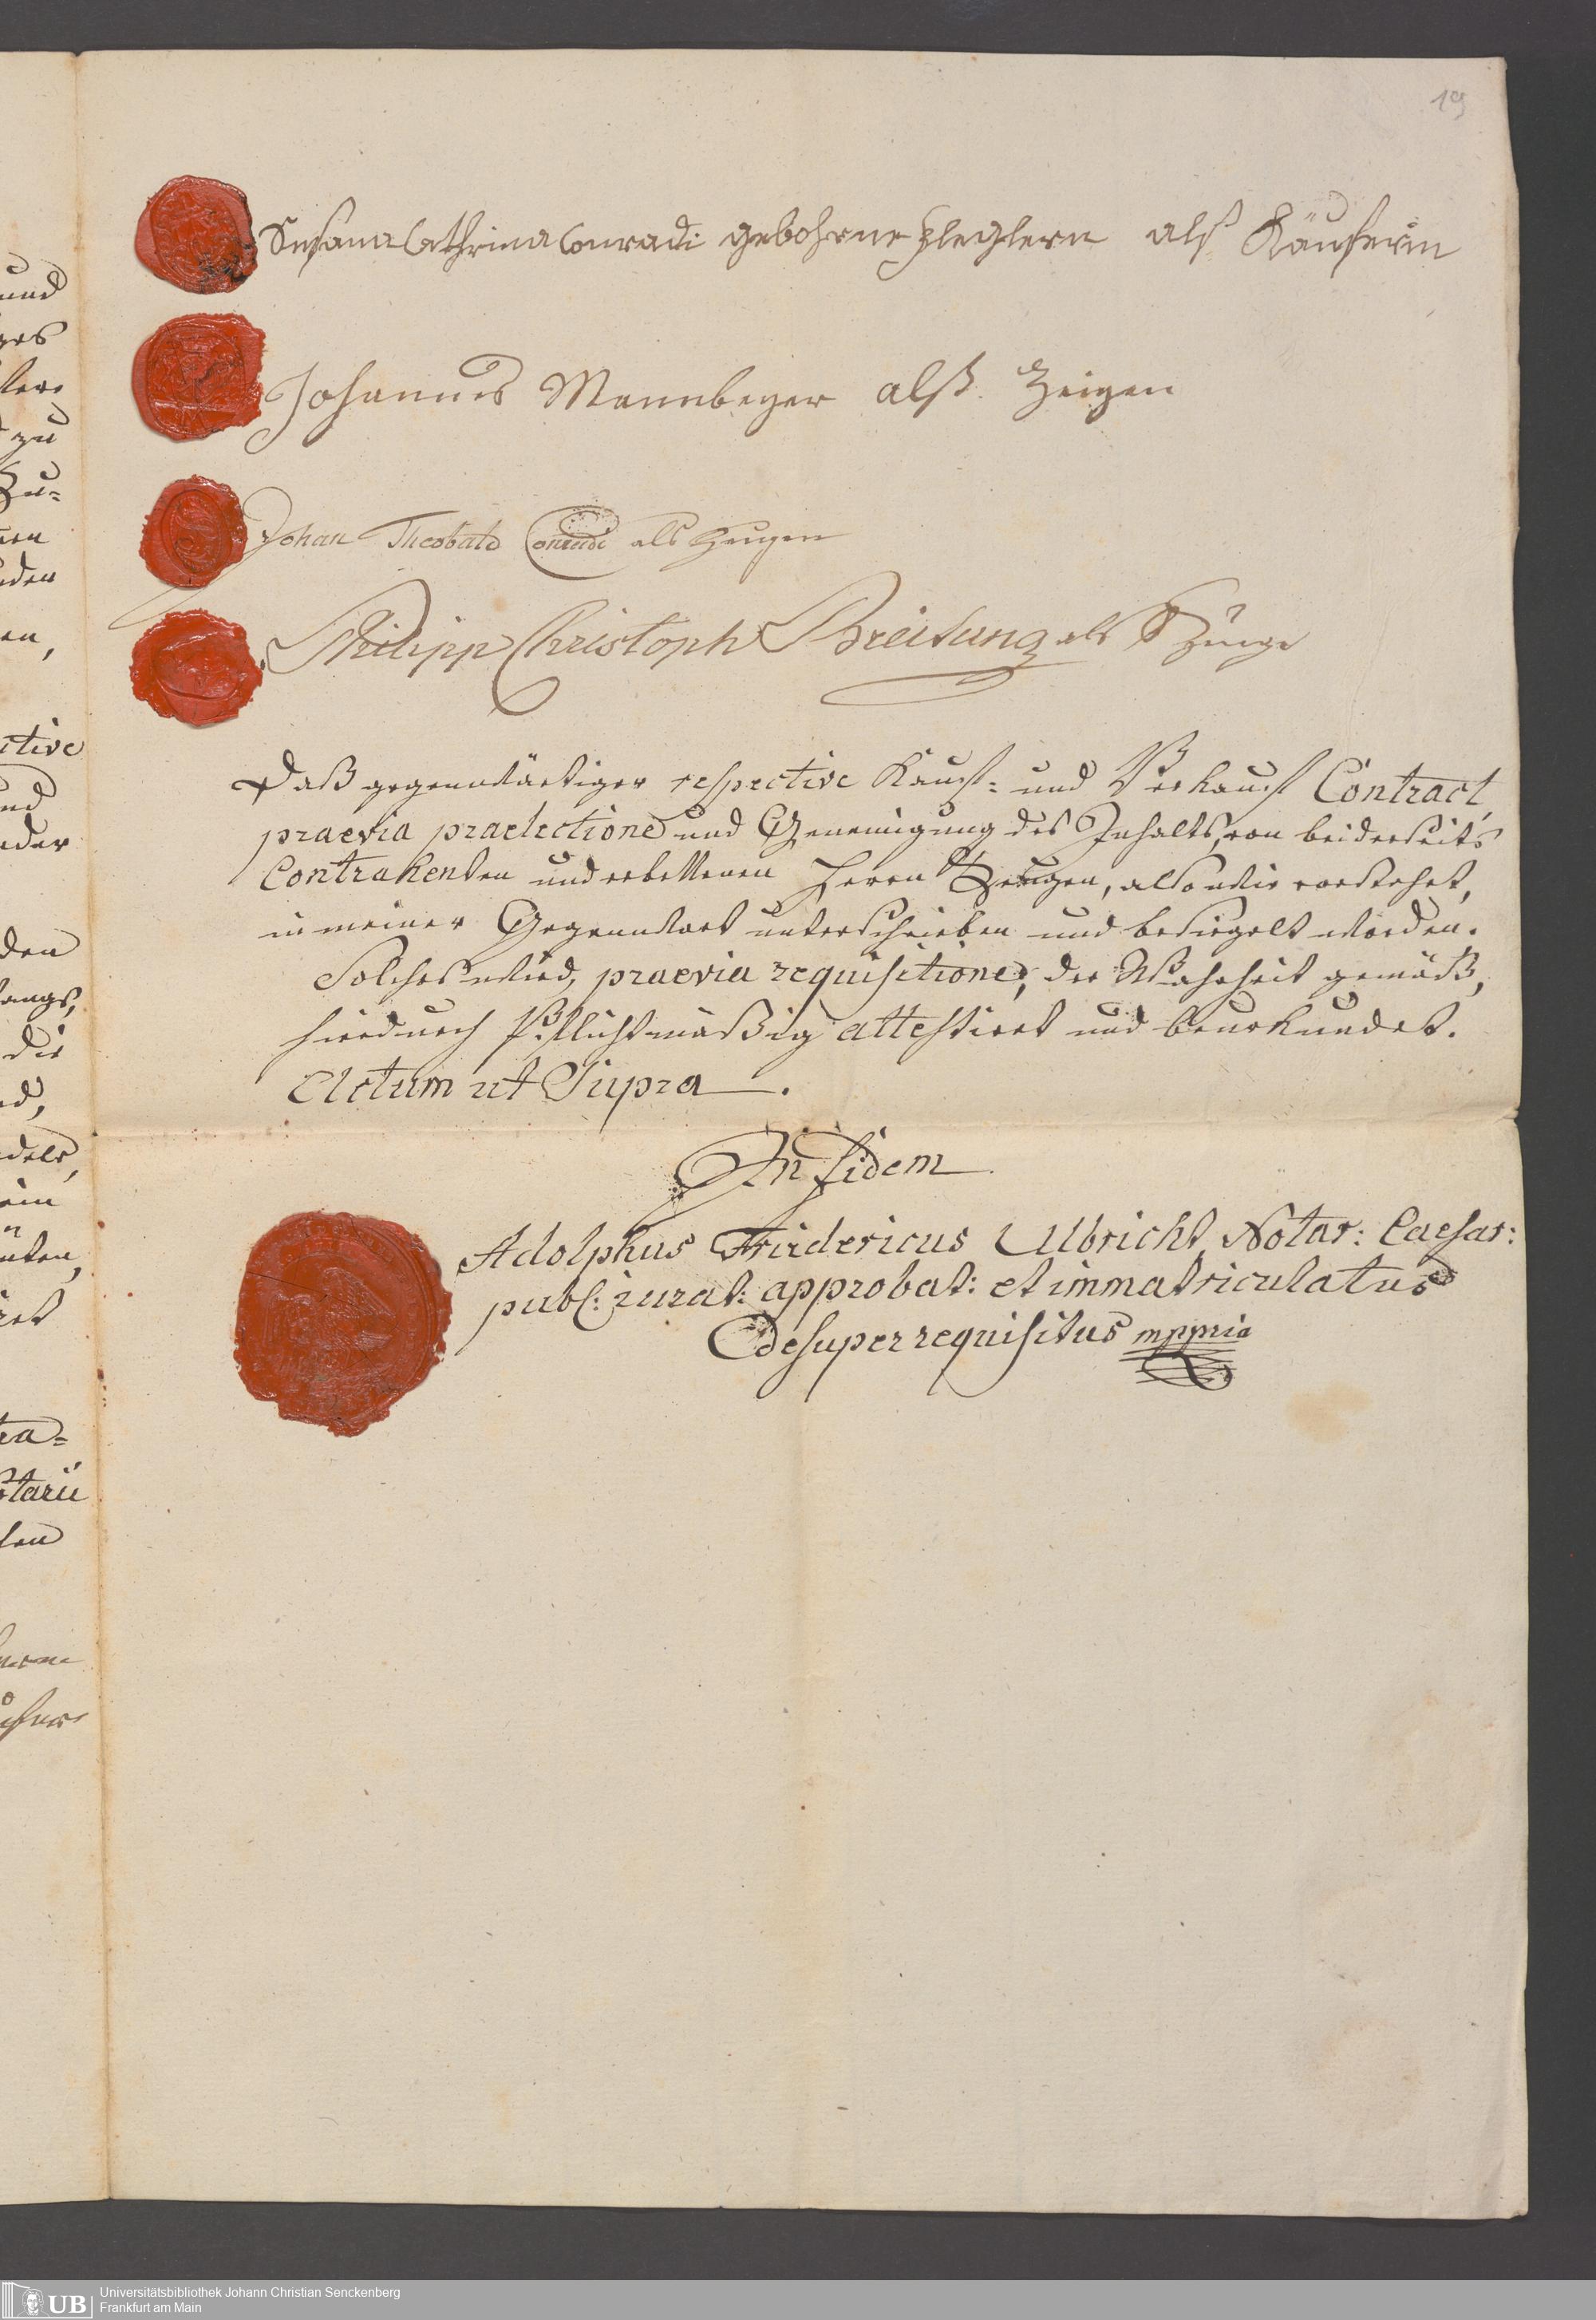 19
Susana Cathrina Conradi gebohrne Zieglern als Käuferin
Johannes Mannbeger alß Zeigen
Johan Theobald Conradi als Zeugen
Philipp Christoph Breitung als Zeuge
Daß gegenwärtiger respective Kauf- und Verkauf Contract,
praevia praelectione und Genemigung des Inhalts, von beiderseits
Contrahenten und erbettenen Herrn Zeugen, also wie vorstehet,
in meiner Gegenwart unterschrieben und besiegelt worden.
Solches wird, praevia requisitione, der Wahrheit gemäß,
hierdurch Pflichtmäßig attestiret und beurkundet.
Actum ut Supra.
In fidem
Adolphus Fridericus Ulbricht, Notar: Caesar:
publ: iurat: approbat: et immatriculatus
desuper requisitus mppria
und
zu
Zu=
den
den
die
UB
Universitätsbibliothek Johann Christian Senckenberg
Frankfurt am Main